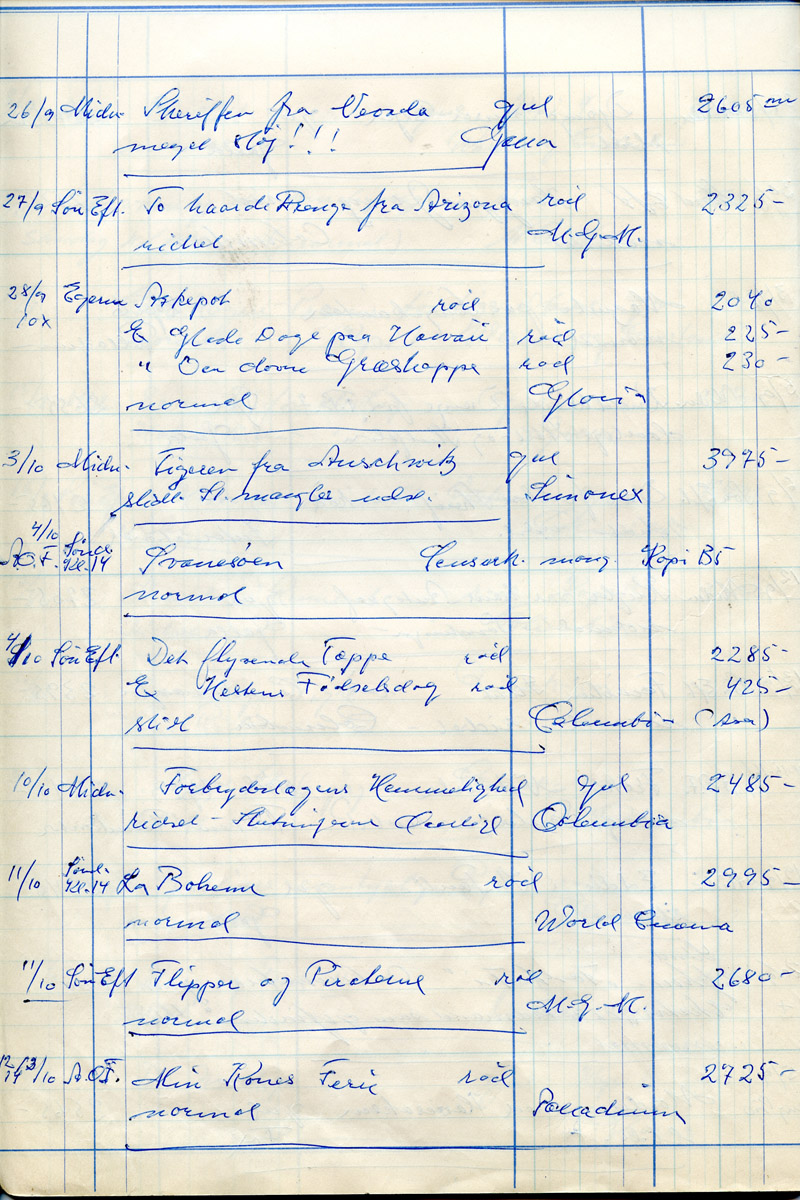 26/9 Midn. Sheriffen fra Nevada gul 2605 m
meget støj!!! Gena
27/9 Søn Eft. To haarde Drenge fra Arizona rød 2325-
ridset M.G.M.
28/9 Askepot rød 2040
10x E Glade Dage paa Hawaii rød 225-
" Den dovne Græshoppe rød 230-
normal Gloria
3/10 Midn. Tigeren fra Auschwitz gul 3975-
slidt St. mangler Simonex
4/10
A.O.F. Sønd. Kl. 14 Svanesøen Censurk. mang. Kopi B5
normal
4/10 Søn Eft. Det flyvende Tæppe rød 2285-
E Hestens Fødselsdag rød 425-
slidt Columbia (Asa)
10/10 Midn. Forbryderlægens Hemmelighed gul 2485-
ridset - Columbia
11/10 Sønd. Kl. 14 La Boheme rød 2995-
normal World Cinema
11/10 Søn Eft Flipper og Piraterne rød 2680-
normal M.G.M.
12/13/14/10 A.O.F. Min Kones Ferie rød 2725-
normal Palladium